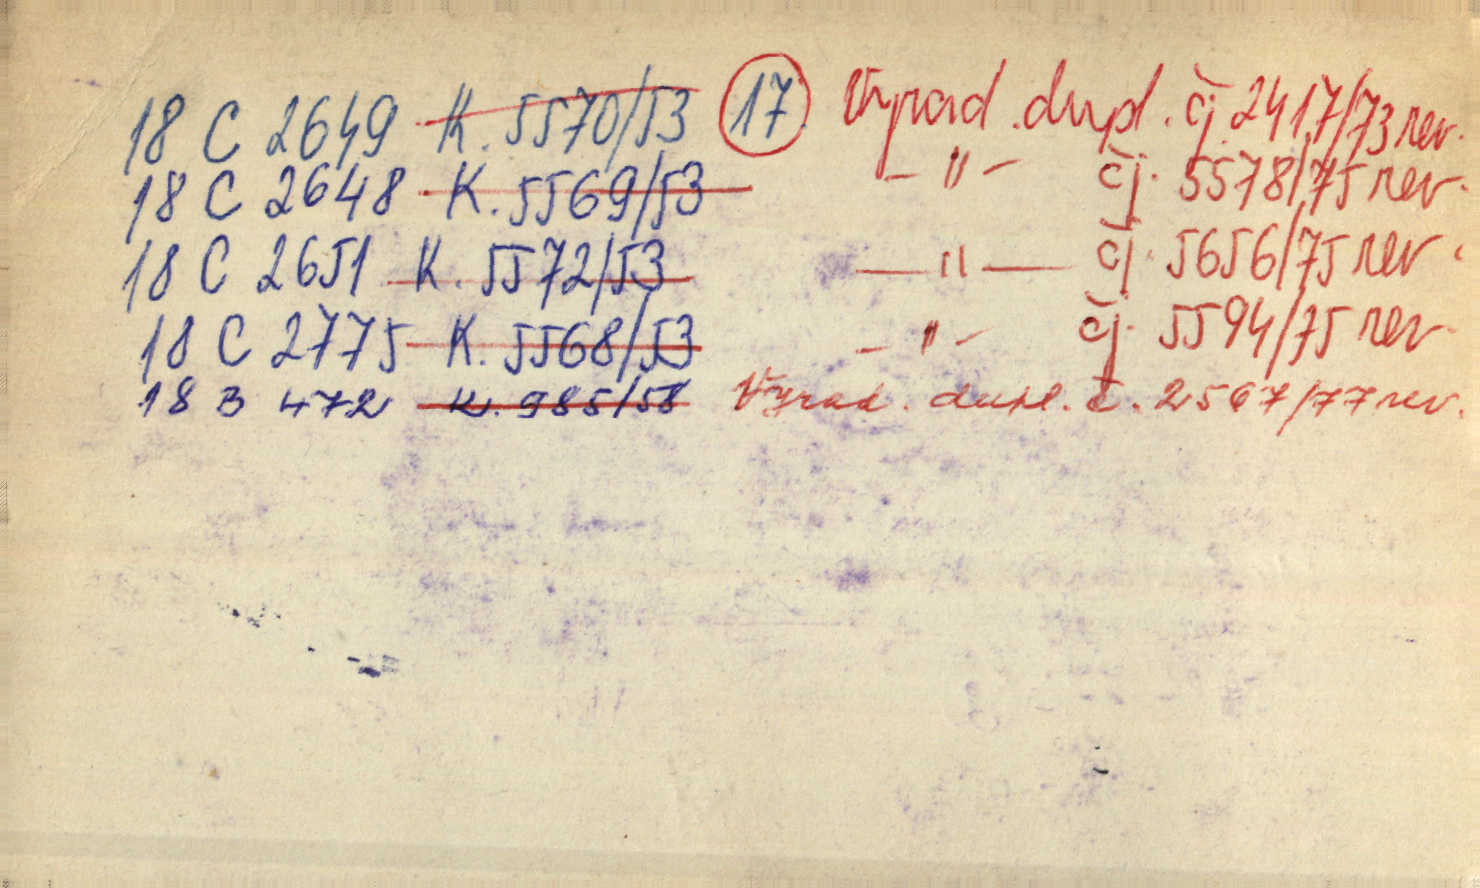 18 C 2649 K. 5570/53 17. Vyřad. dupl. čj. 2417/73 rev.
18 C 2648 K. 5569/53 – " – čj. 5578/75 rev.
18 C 2651 K. 5572/53 – " – čj. 5656/75 rev.
18 C 2775 K. 5568/53 – " – čj. 5594/75 rev.
18 B 472 K. 985/58 Vyřad. dupl. č. 2567/77 rev.